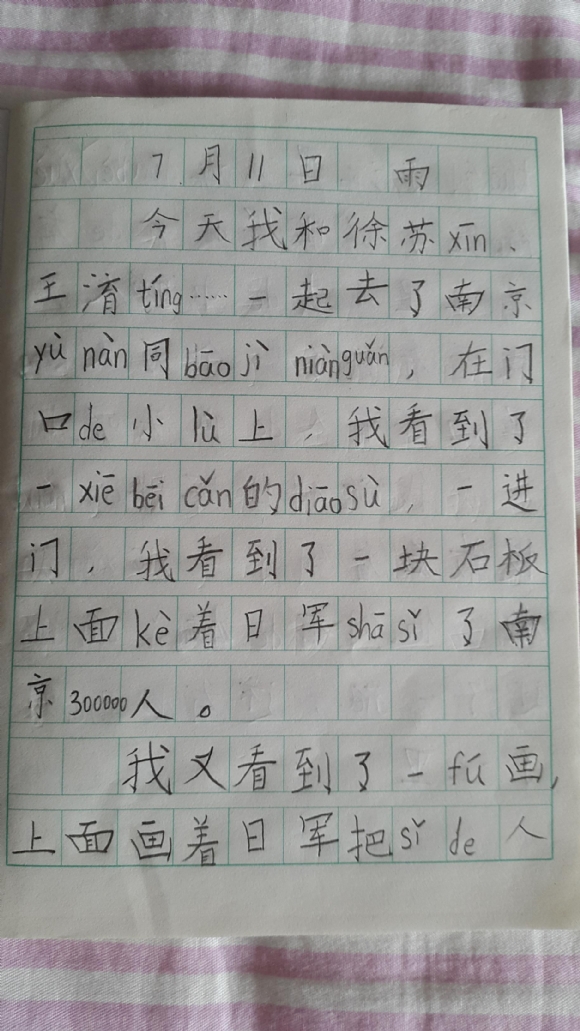 7月11日 雨
今天我和徐苏xīn、
王淯tíng……一起去了南京
yù nàn同bāo jì niànguǎn，在门
口de小lù上，我看到了
一xiē bēi cǎn的diāo sù，一进
门，我看到了一块石板
上面kè着日军shā sǐ了南
京300000人。
我又看到了一fú画，
上面画着日军把sǐ de人